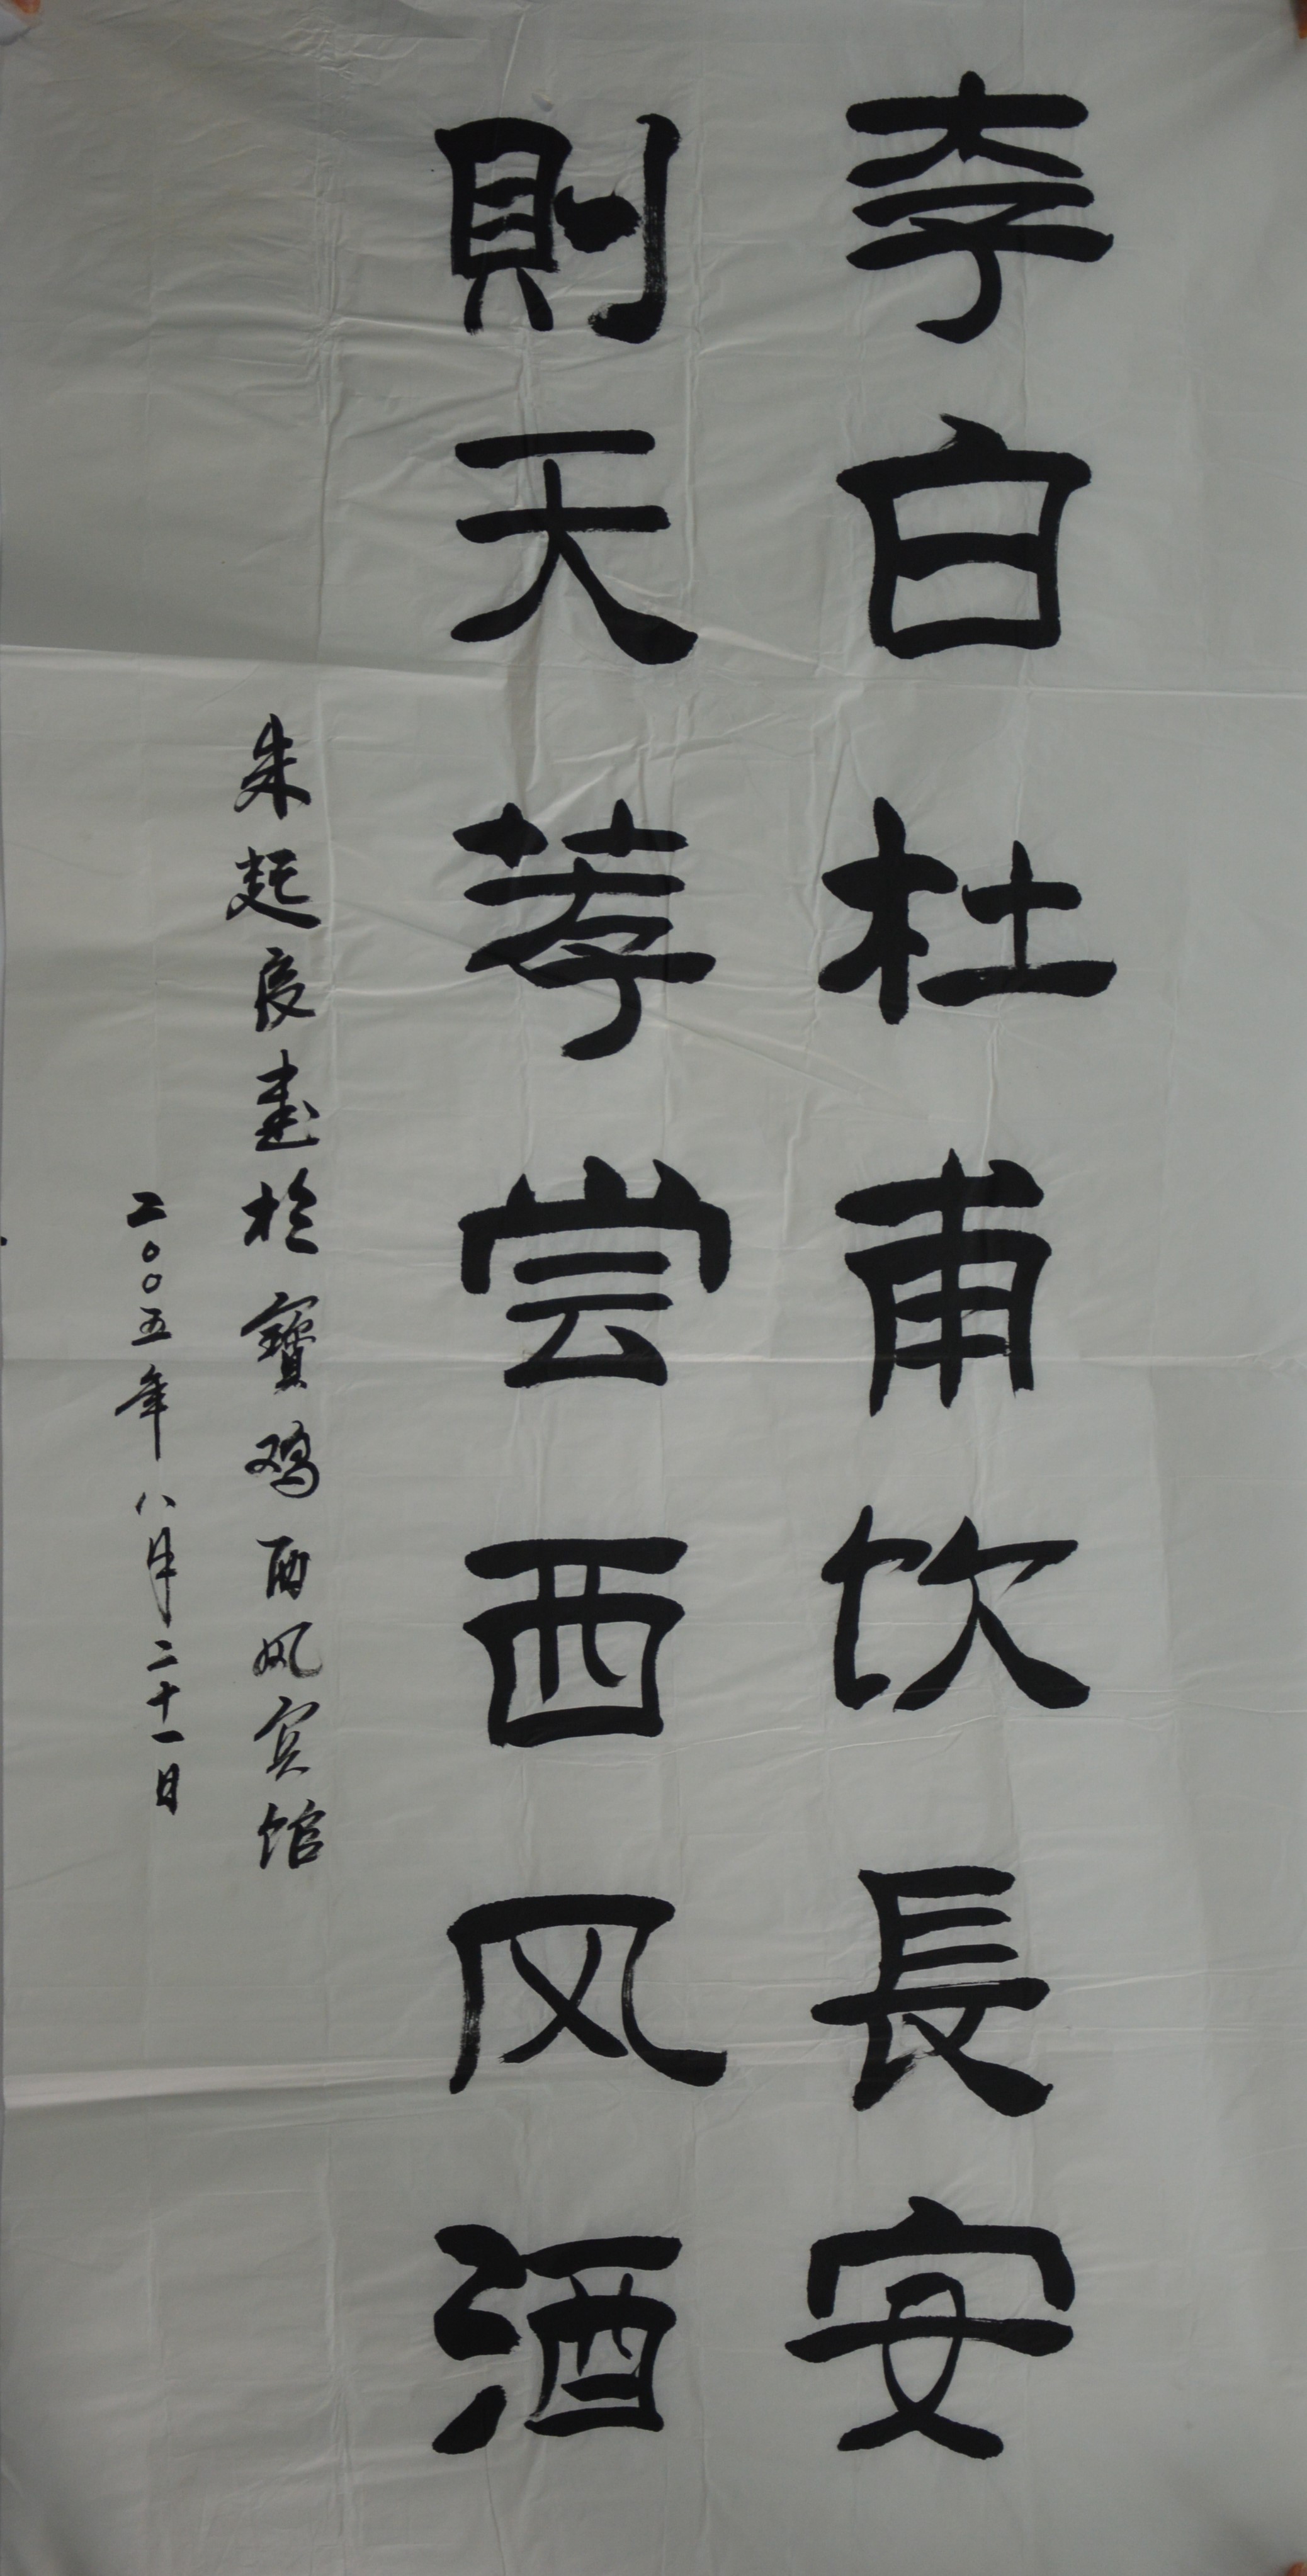 李白杜甫饮長安
則天荐尝西风酒
朱起良書於寳鸡西风宾馆
二〇〇五年八月二十一日